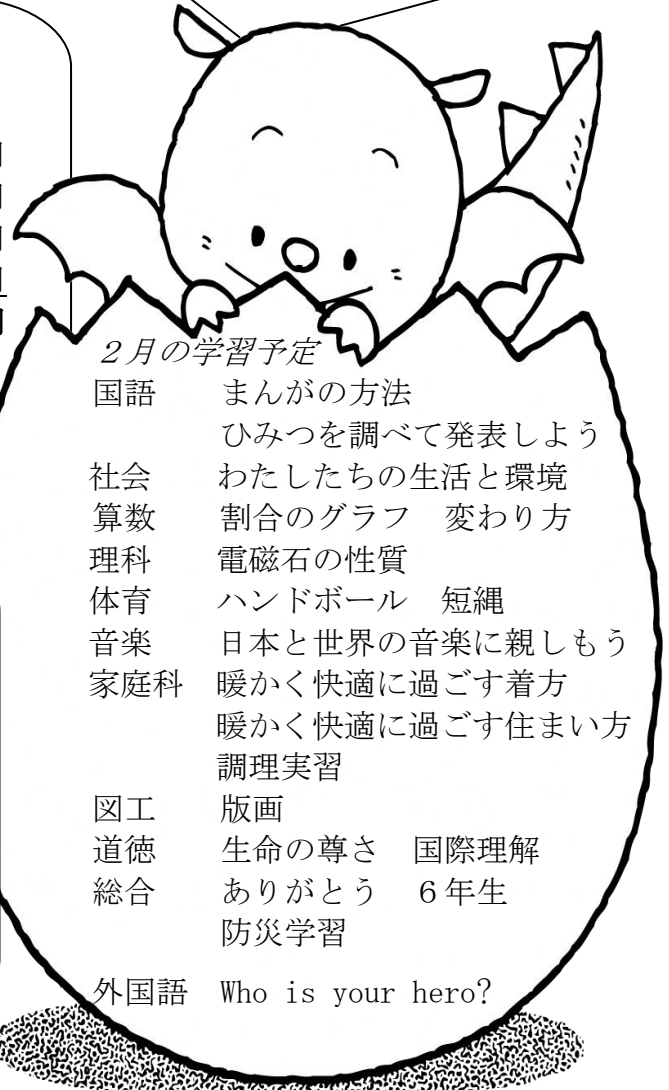 ２月の学習予定
国語　　まんがの方法
ひみつを調べて発表しよう
社会　　わたしたちの生活と環境
算数　　割合のグラフ　変わり方
理科　　電磁石の性質
体育　　ハンドボール　短縄
音楽　　日本と世界の音楽に親しもう
家庭科　暖かく快適に過ごす着方
暖かく快適に過ごす住まい方
調理実習
図工　　版画
道徳　　生命の尊さ　国際理解
総合　　ありがとう　６年生
防災学習
外国語　Who is your hero?